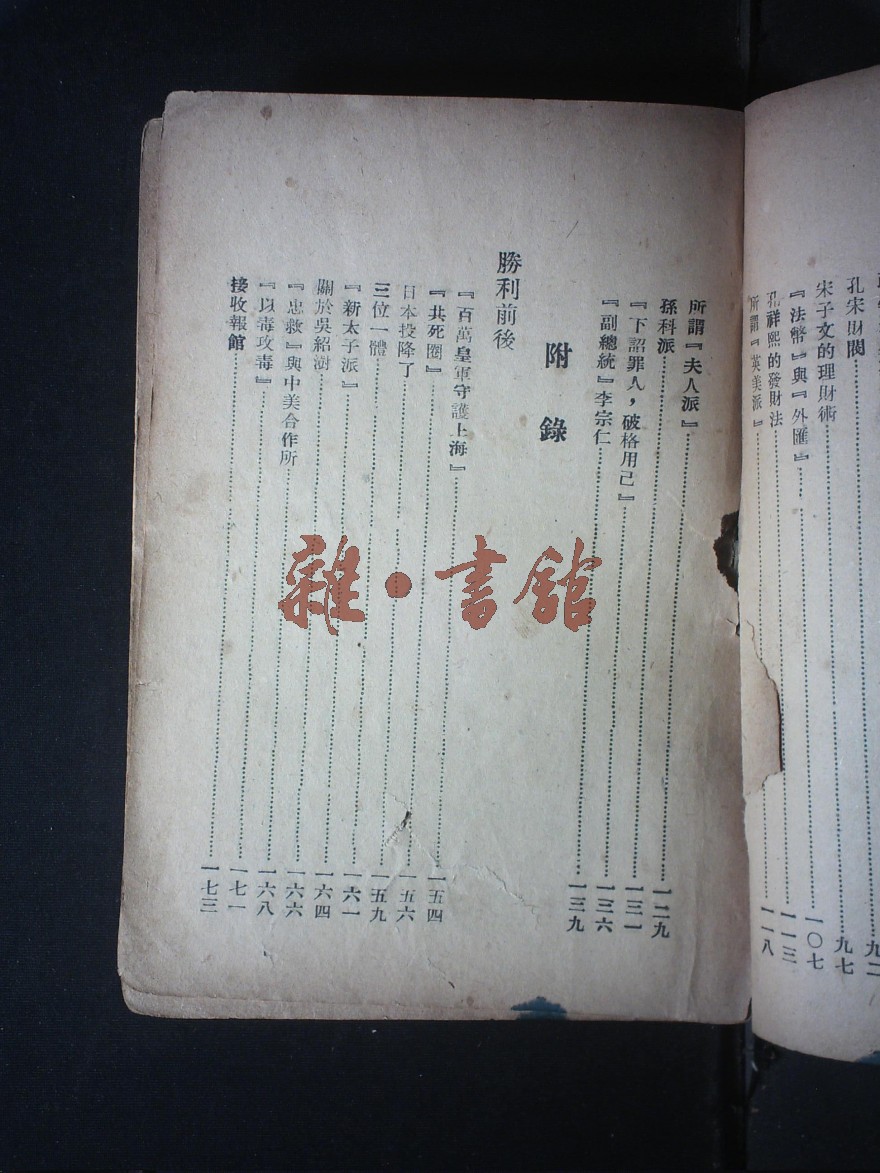 孔宋財閥……九二
宋子文的理財術……九七
『法幣』與『外匯』……一〇七
孔祥熙的發財法……一一三
所謂『英美派』……一一八
所謂『夫人派』……一二九
孫科派……一三一
『下詔罪人，破格用己』……一三六
『副總統』李宗仁……一三九
附錄
勝利前後
『百萬皇軍守護上海』……一五四
『共死圈』……一五六
日本投降了……一五九
三位一體……一六一
『新太子派』……一六四
關於吳紹樹……一六六
『忠救』與中美合作所……一六八
『以毒攻毒』……一七一
接收報館……一七三
雜·書館